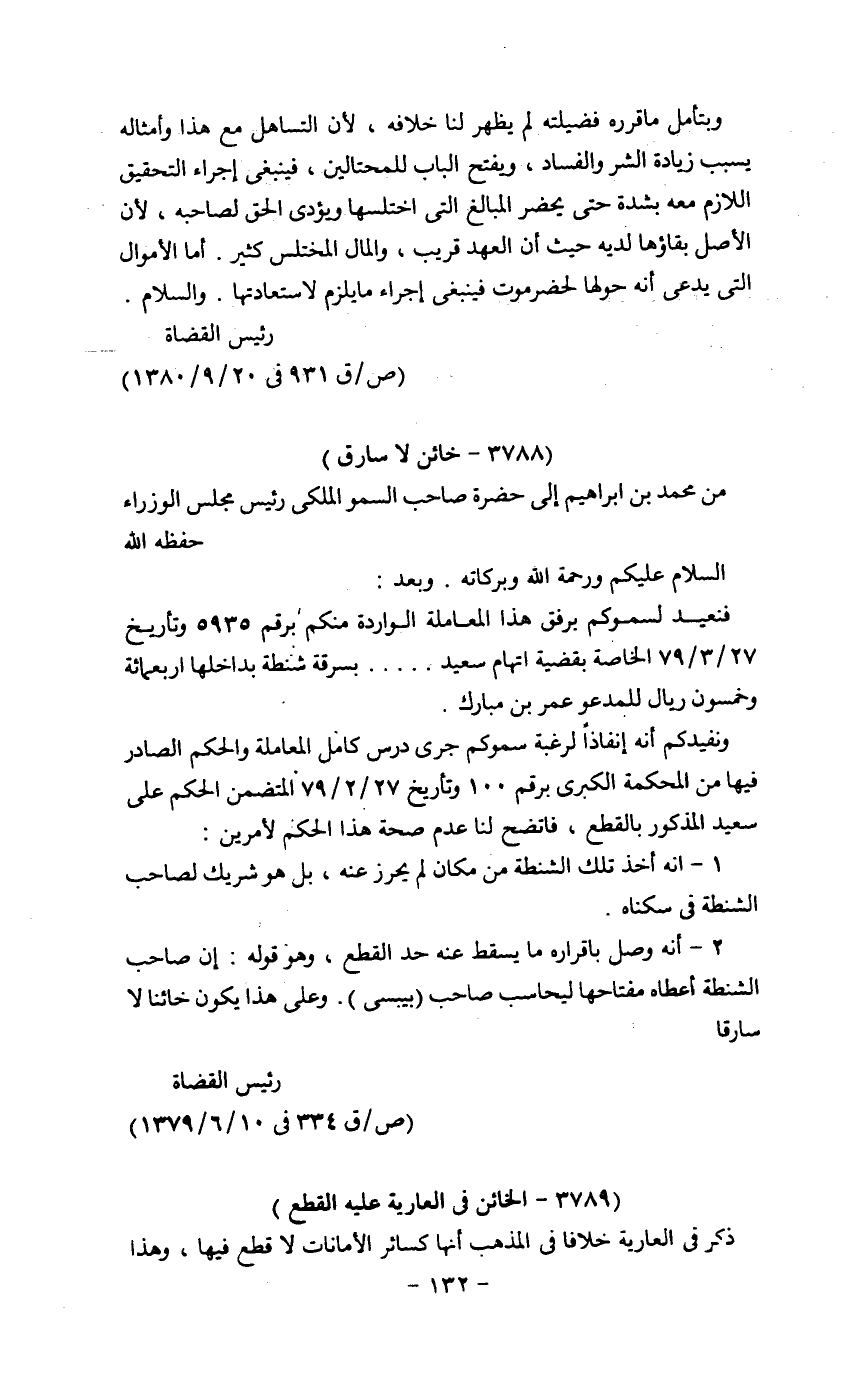 وبتأمل ماقرره فضيلته لم يظهر لنا خلافه ، لأن التساهل مع هذا وأمثاله
يسبب زيادة الشر والفساد ، ويفتح الباب للمحتالين ، فينبغى إجراء التحقيق
اللازم معه بشدة حتى يحضر المبالغ التى اختلسها ويؤدى الحق لصاحبه ، لأن
الأصل بقاؤها لديه حيث أن العهد قريب ، والمال المختلس كثير . أما الأموال
التى يدعى أنه حولها لحضرموت فينبغى إجراء مايلزم لاستعادتها . والسلام .
رئيس القضاة
(ص/ق ٩٣١ فى ٢٠/٩/١٣٨٠)
(٣٧٨٨ - خائن لا سارق )
من محمد بن ابراهيم إلى حضرة صاحب السمو الملكى رئيس مجلس الوزراء
حفظه الله
السلام عليكم ورحمة الله وبركاته . وبعد :
فنعيد لسموكم برفق هذا المعاملة الواردة منكم برقم ٥٩٣٥ وتأريخ
٧٩/٣/٢٧ الخاصة بقضية اتهام سعيد ..... بسرقة شنطة بداخلها اربعمائة
وخمسون ريال للمدعو عمر بن مبارك .
ونفيدكم أنه إنفاذاً لرغبة سموكم جرى درس كامل المعاملة والحكم الصادر
فيها من المحكمة الكبرى برقم ١٠٠ وتأريخ ٧٩/٢/٢٧ المتضمن الحكم على
سعيد المذكور بالقطع ، فاتضح لنا عدم صحة هذا الحكم لأمرين :
١ - انه أخذ تلك الشنطة من مكان لم يحرز عنه ، بل هو شريك لصاحب
الشنطة فى سكناه .
٢ - أنه وصل باقراره ما يسقط عنه حد القطع ، وهو قوله : إن صاحب
الشنطة أعطاه مفتاحها ليحاسب صاحب (بيبسى ). وعلى هذا يكون خائنا لا
سارقا
رئيس القضاة
(ص/ق ٣٣٤ فى ١٠/٦/١٣٧٩)
(٣٧٨٩ - الخائن فى العارية عليه القطع )
ذكر فى العارية خلافا فى المذهب أنها كسائر الأمانات لا قطع فيها ، وهذا
- ١٣٢ -